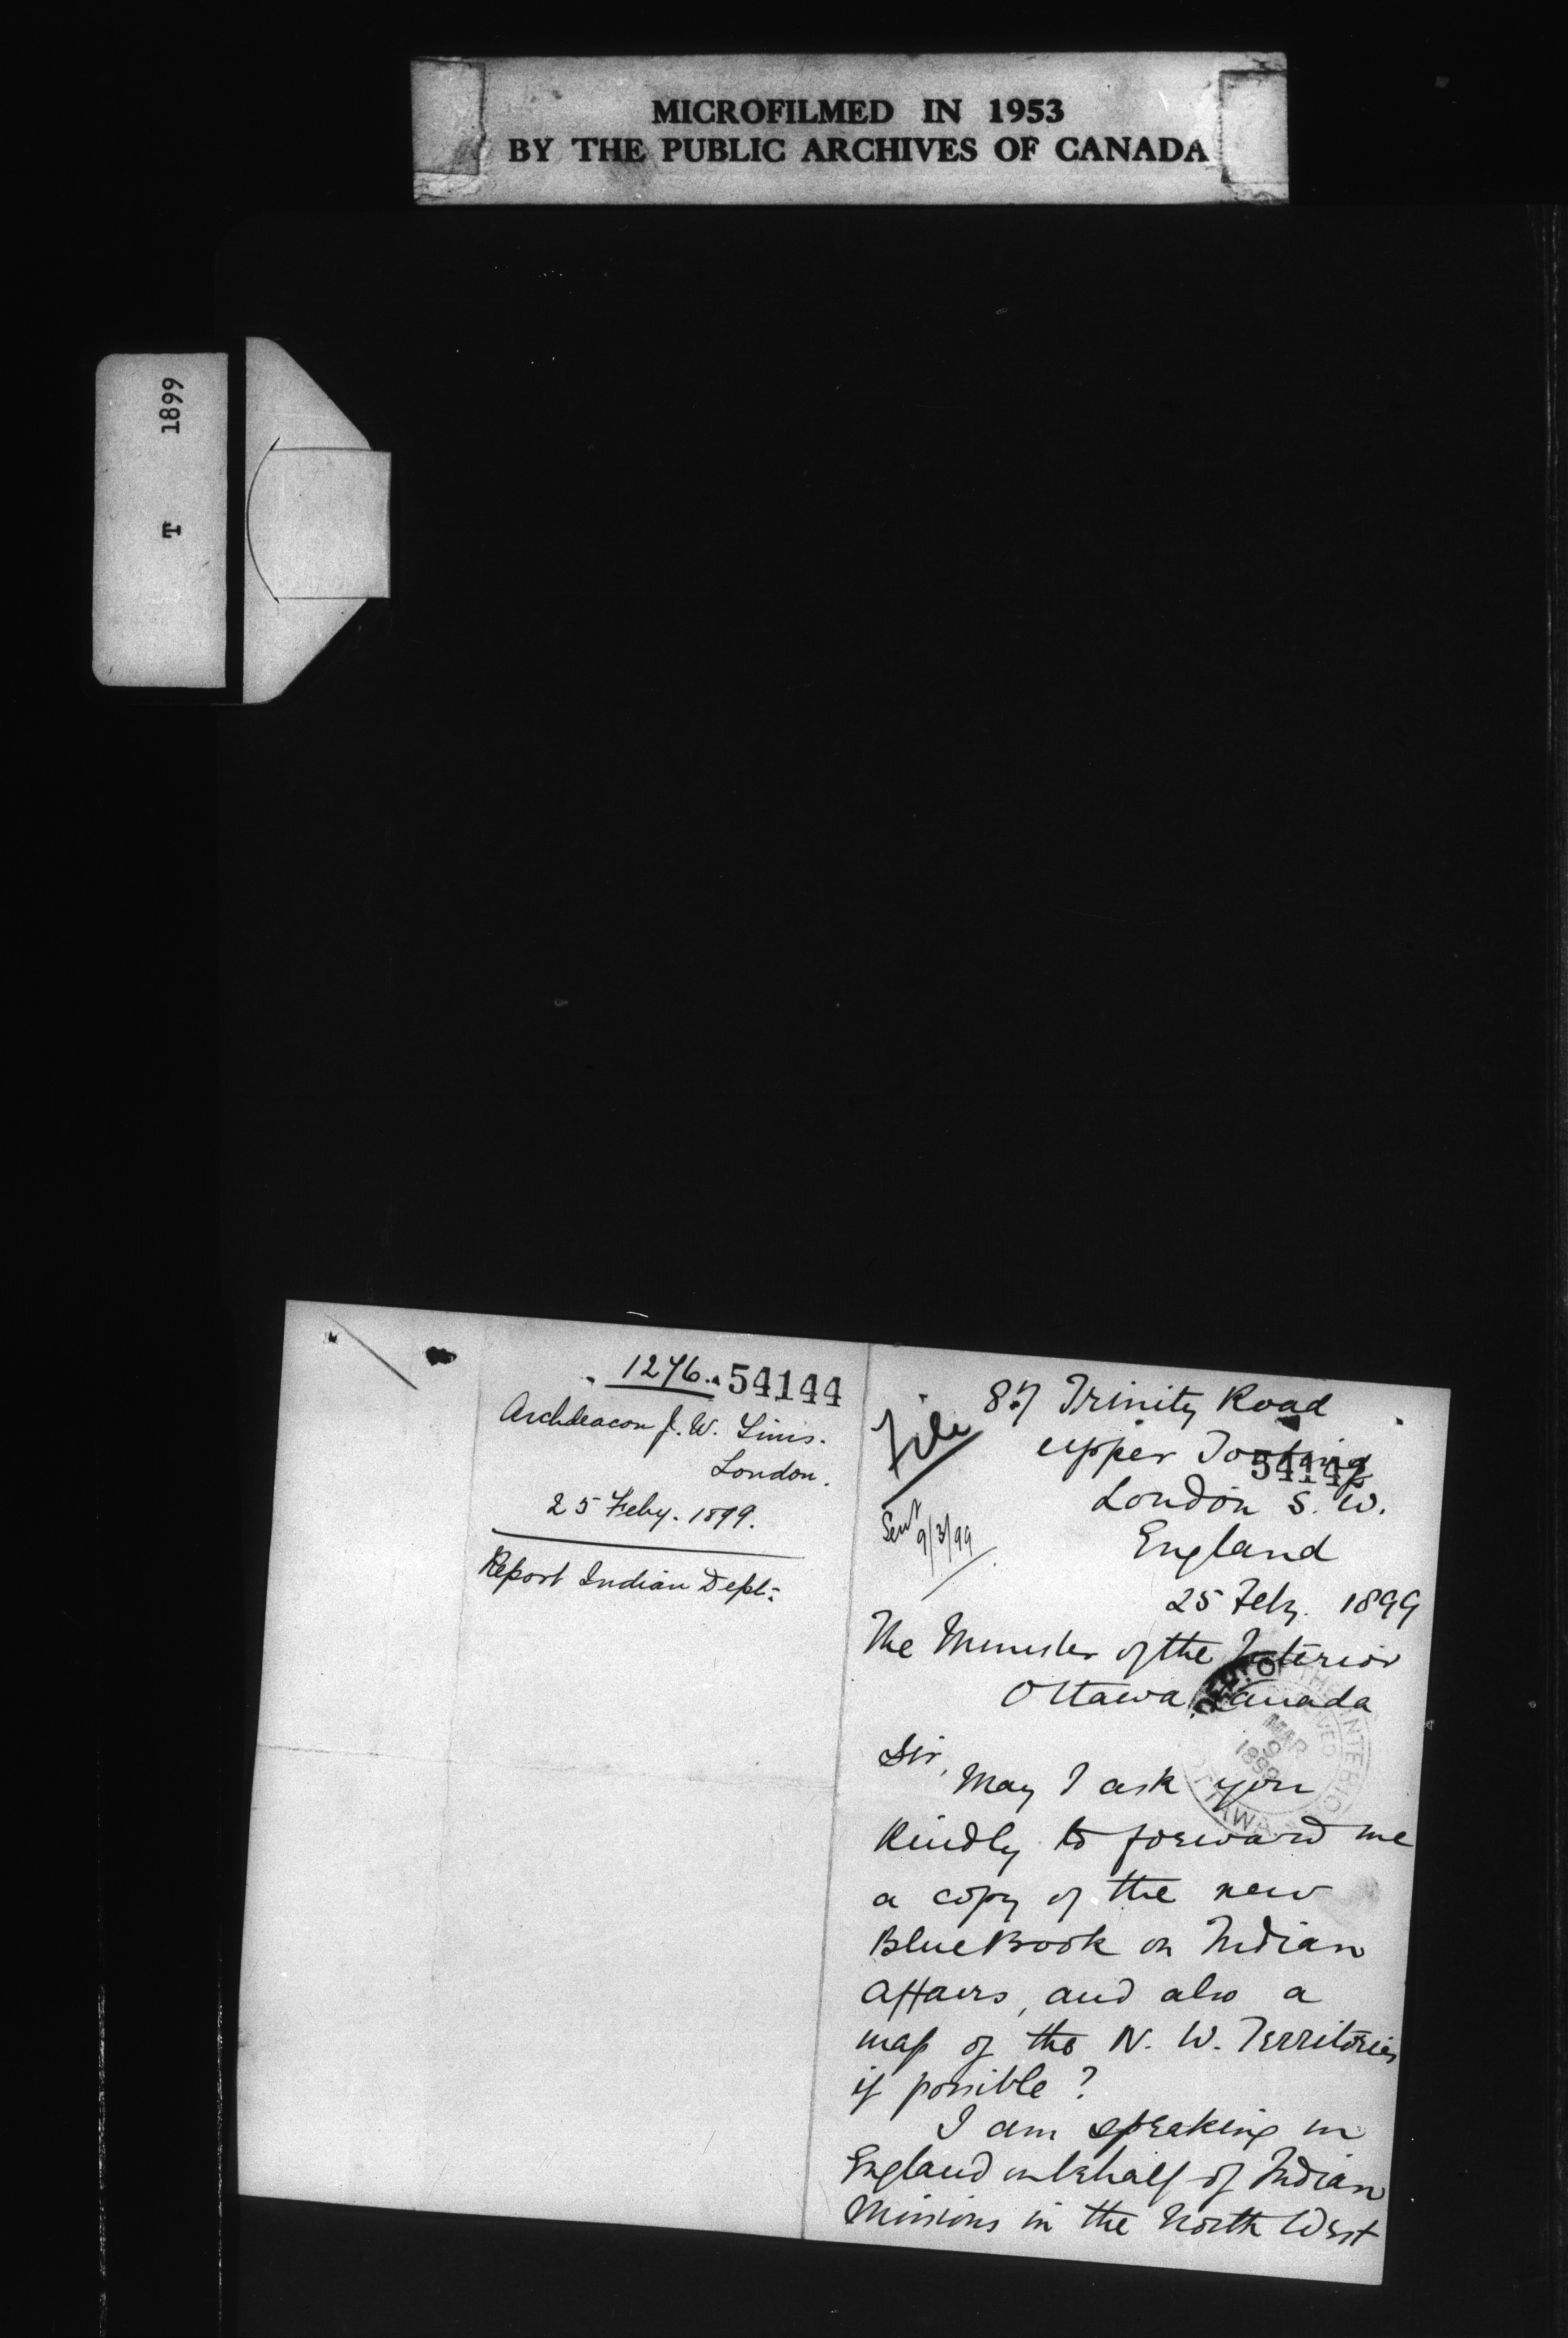 MICROFILMED IN 1953
BY THE PUBLIC ARCHIVES OF CANADA
T 1899
1276. 54144
Archdeacon J. W. Tims.
London.
25 Feby. 1899.
Report Indian Dept:
File
Sent 9/3/99
87 Trinity Road
Upper Tooting
54142
London S. W.
England
25 Feby. 1899
The Minister of the Interior
Ottawa, Canada
MAR 9 1899
Sir,
May I ask you
kindly to forward me
a copy of the new
Blue Book on Indian
Affairs, and also a
map of the N. W. Territories
if possible?
I am speaking in
England on behalf of Indian
Missions in the North West